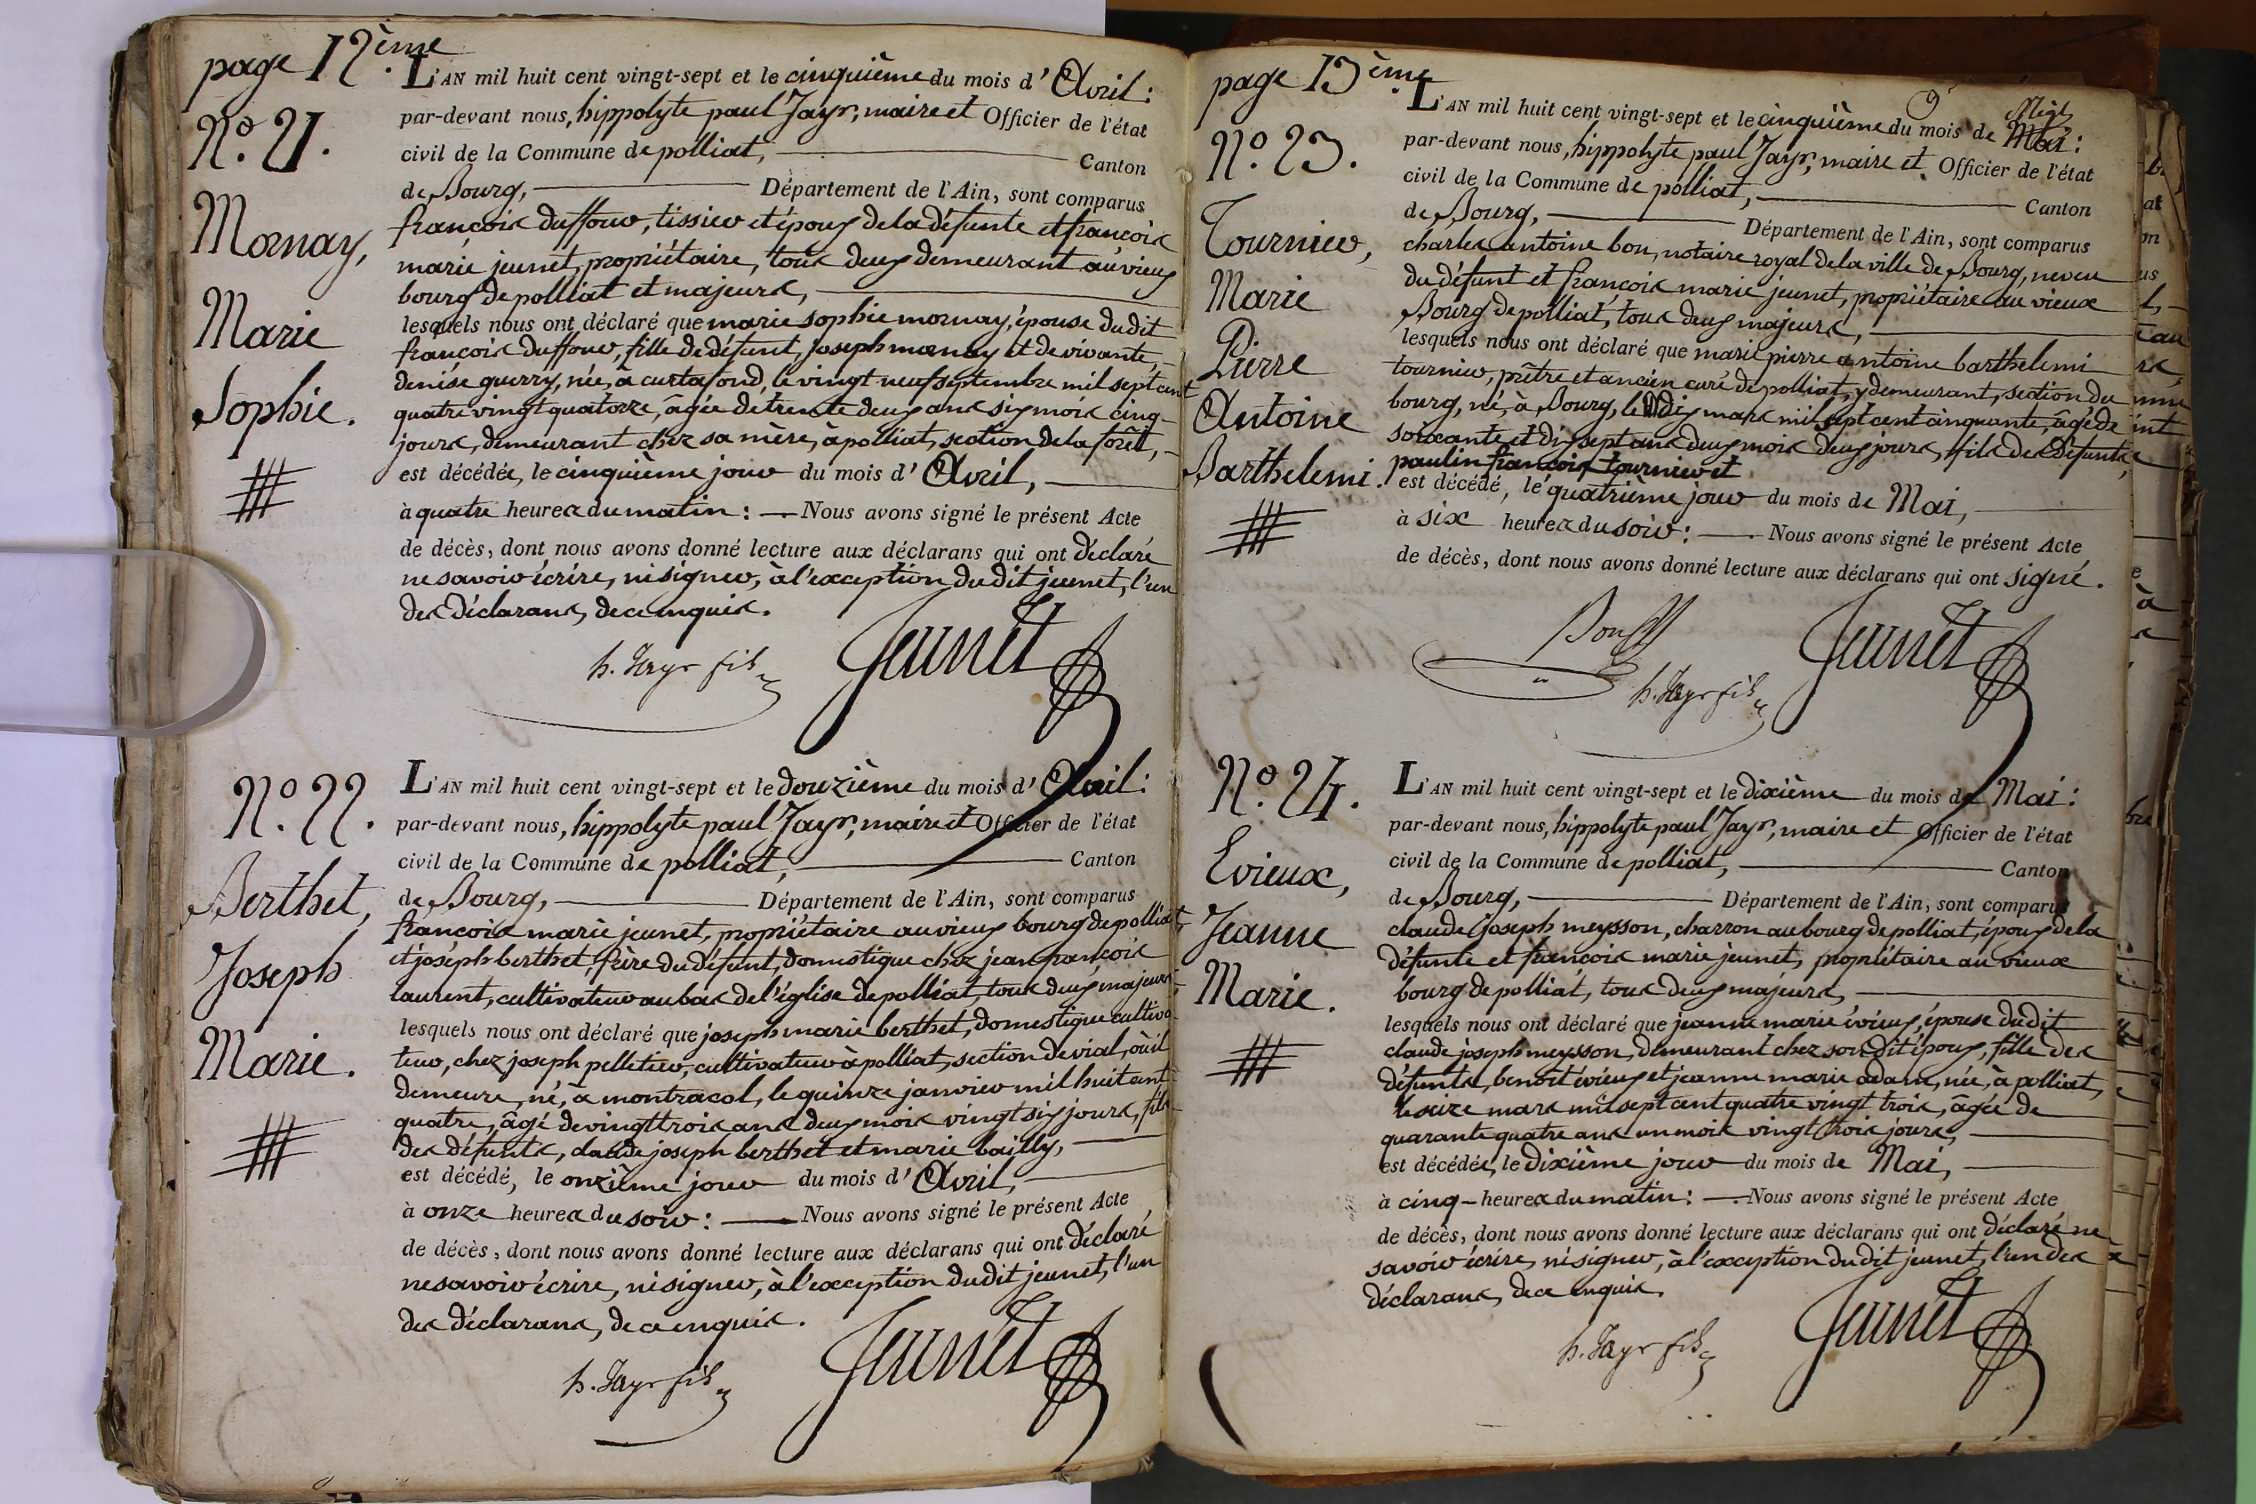 page 12ème
N.º 21.
Mornay,
Marie
Sophie.
L'AN mil huit cent vingt-sept et le cinquième du mois d' Avril :
par-devant nous, hippolyte paul Jayr, maire et Officier de l'état
civil de la Commune de polliat, Canton
de Bourg, Département de l'Ain, sont comparus
françois duffour, tissier et époux de la défunte et françois
marie jeunet, propriétaire, tous deux demeurant au vieux
bourg de polliat et majeurs,
lesquels nous ont déclaré que marie sophie mornay, épouse dudit
françois duffour, fille de défunt, joseph mornay et de vivante,
denise guerry, née, à curtafond, le vingt neuf septembre mil sept cent
quatre vingt quatorze, âgée de trente deux ans six mois cinq
jours, demeurant chez sa mère, à polliat, section de la forêt,
est décédée, le cinquième jour du mois d' Avril,
à quatre heures du matin : Nous avons signé le présent Acte
de décès, dont nous avons donné lecture aux déclarans qui ont déclaré
ne savoir écrire, ni signer, à l'exception dudit jeunet, l'un
des déclarans, de ce enquis.
h. Jayr fils Jeunet
N.º 22.
Berthet,
Joseph
Marie.
L'AN mil huit cent vingt-sept et le douzième du mois d' Avril :
par-devant nous, hippolyte paul Jayr, maire et Officier de l'état
civil de la Commune de polliat, Canton
de Bourg, Département de l'Ain, sont comparus
françois marie jeunet, propriétaire au vieux bourg de polliat,
et joseph berthet, frère du défunt, domestique chez jean françois
laurent, cultivateur au bas de l'église de polliat, tous deux majeurs,
lesquels nous ont déclaré que joseph marie berthet, domestique cultiva-
teur, chez joseph pelletier, cultivateur à polliat, section de vial, où il
demeure, né, à montracol, le quinze janvier mil huit cent
quatre, âgé de vingt trois ans deux mois vingt six jours, fils
des défunts, claude joseph berthet et marie bailly,
est décédé, le onzième jour du mois d' Avril,
à onze heures du soir : Nous avons signé le présent Acte
de décès, dont nous avons donné lecture aux déclarans qui ont déclaré
ne savoir écrire, ni signer, à l'exception dudit jeunet, l'un
des déclarans, de ce enquis.
h. Jayr fils Jeunet
page 13ème
N.º 23.
Tournier,
Marie
Pierre
Antoine
Barthelemi.
L'AN mil huit cent vingt-sept et le cinquième du mois de Mai :
par-devant nous, hippolyte paul Jayr, maire et Officier de l'état
civil de la Commune de polliat, Canton
de Bourg, Département de l'Ain, sont comparus
charles antoine bon, notaire royal de la ville de Bourg, neveu
du défunt et françois marie jeunet, propriétaire au vieux
Bourg de polliat, tous deux majeurs,
lesquels nous ont déclaré que marie pierre antoine barthelemi
tournier, prêtre et ancien curé de polliat, y demeurant, section du
bourg, né, à Bourg, le dix mars mil sept cent cinquante, âgé de
soixante et dix sept ans deux mois deux jours, fils des défunts,
paulin françois tournier et
est décédé, le quatrième jour du mois de Mai,
à six heures du soir : Nous avons signé le présent Acte
de décès, dont nous avons donné lecture aux déclarans qui ont signé.
Bon Jeunet
h. Jayr fils
N.º 24.
Evieux,
Jeanne
Marie.
L'AN mil huit cent vingt-sept et le dixième du mois de Mai :
par-devant nous, hippolyte paul Jayr, maire et Officier de l'état
civil de la Commune de polliat, Canton
de Bourg, Département de l'Ain, sont comparus
claude joseph meysson, charron au bourg de polliat, époux de la
défunte et françois marie jeunet, propriétaire au vieux
bourg de polliat, tous deux majeurs,
lesquels nous ont déclaré que jeanne marie évieux, épouse dudit
claude joseph meysson, demeurant chez son dit époux, fille des
défunts, benoît évieux et jeanne marie adam, née, à polliat,
le seize mars mil sept cent quatre vingt trois, âgée de
quarante quatre ans un mois vingt trois jours,
est décédée, le dixième jour du mois de Mai,
à cinq heures du matin : Nous avons signé le présent Acte
de décès, dont nous avons donné lecture aux déclarans qui ont déclaré ne
savoir écrire, ni signer, à l'exception dudit jeunet, l'un des
déclarans, de ce enquis.
h. Jayr fils Jeunet